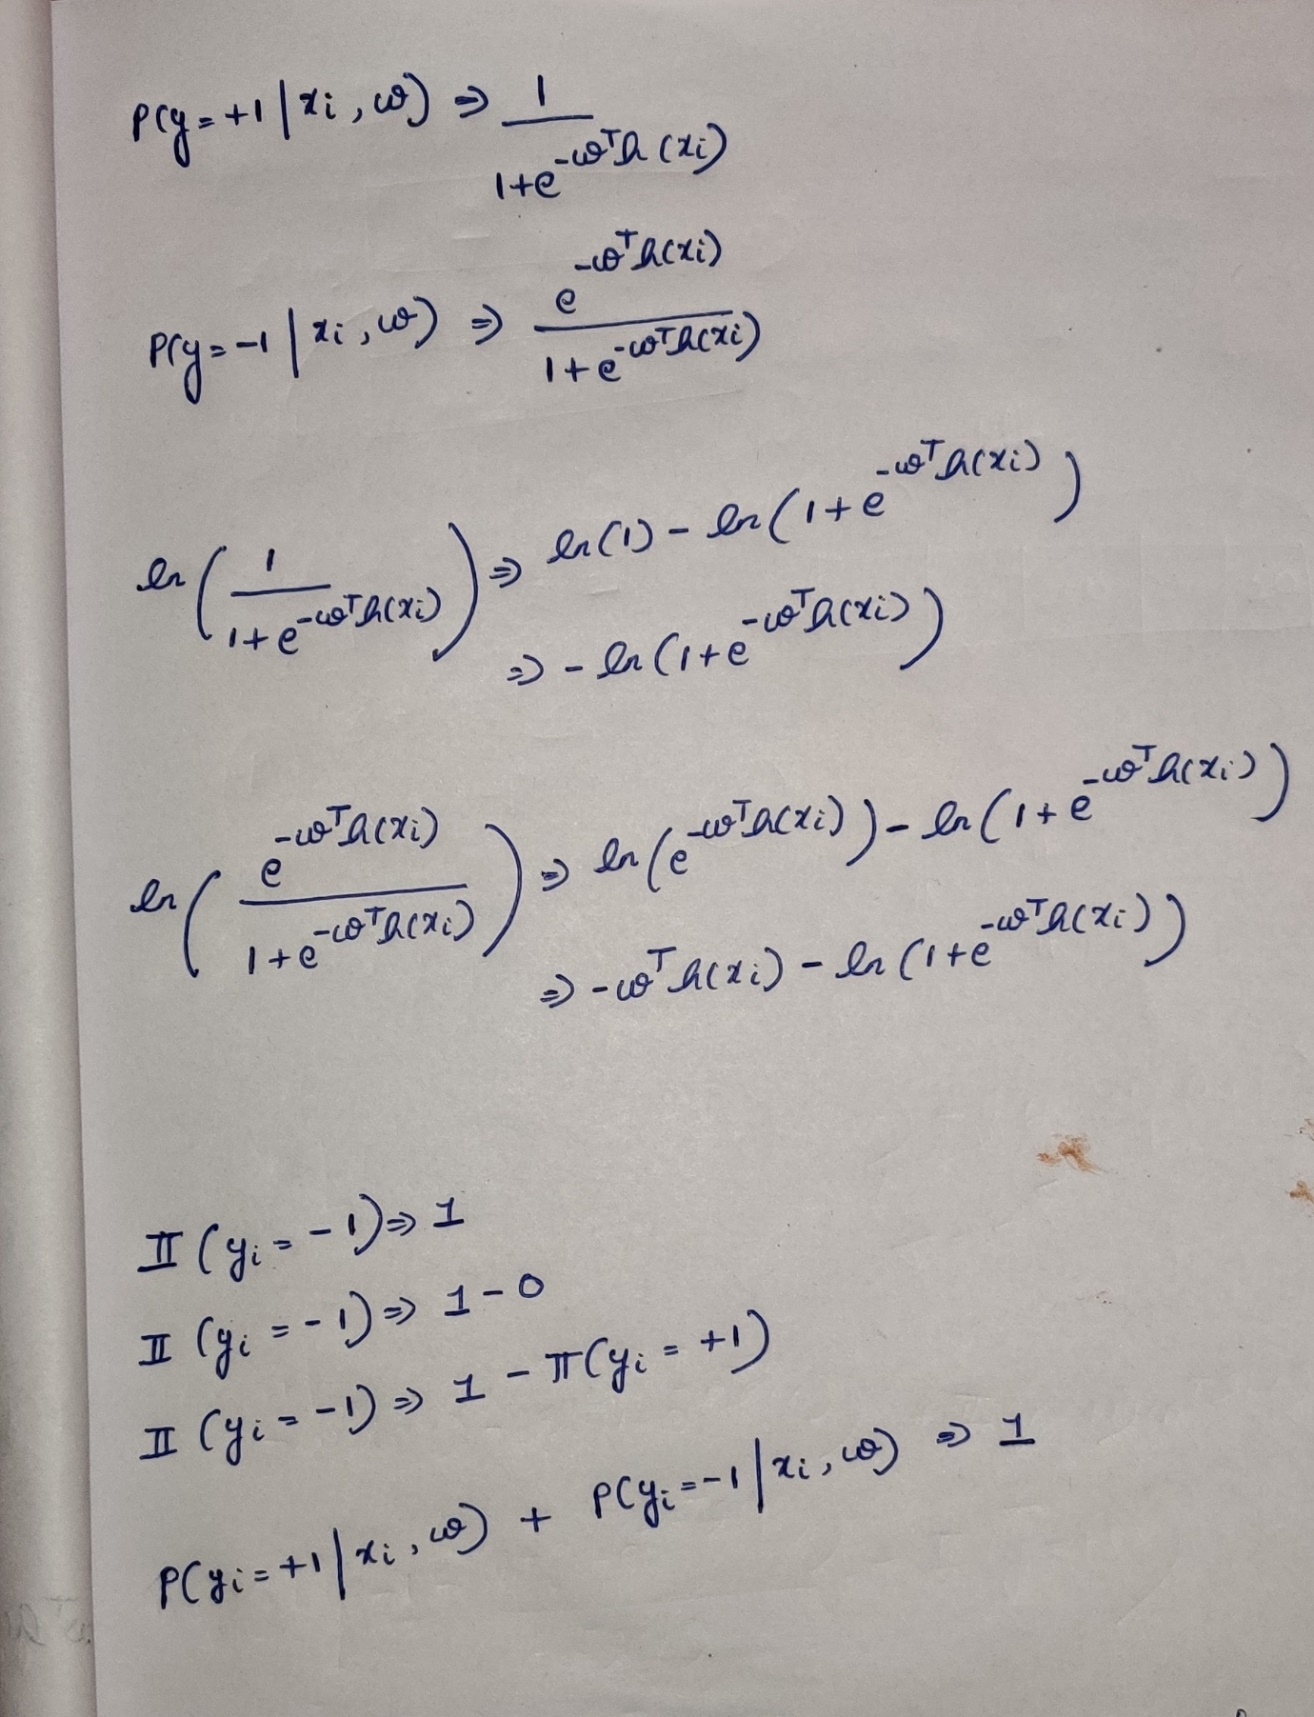 P(y=+1 | xi, ω) ⇒ 1 / (1+e^(-ω^T h(xi)))
P(y=-1 | xi, ω) ⇒ e^(-ω^T h(xi)) / (1+e^(-ω^T h(xi)))
ln(1 / (1+e^(-ω^T h(xi)))) ⇒ ln(1) - ln(1+e^(-ω^T h(xi)))
⇒ - ln(1+e^(-ω^T h(xi)))
ln(e^(-ω^T h(xi)) / (1+e^(-ω^T h(xi)))) ⇒ ln(e^(-ω^T h(xi))) - ln(1+e^(-ω^T h(xi)))
⇒ -ω^T h(xi) - ln(1+e^(-ω^T h(xi)))
II (yi = -1) ⇒ 1
II (yi = -1) ⇒ 1-0
II (yi = -1) ⇒ 1 - π(yi = +1)
P(yi=+1 | xi, ω) + P(yi=-1 | xi, ω) ⇒ 1